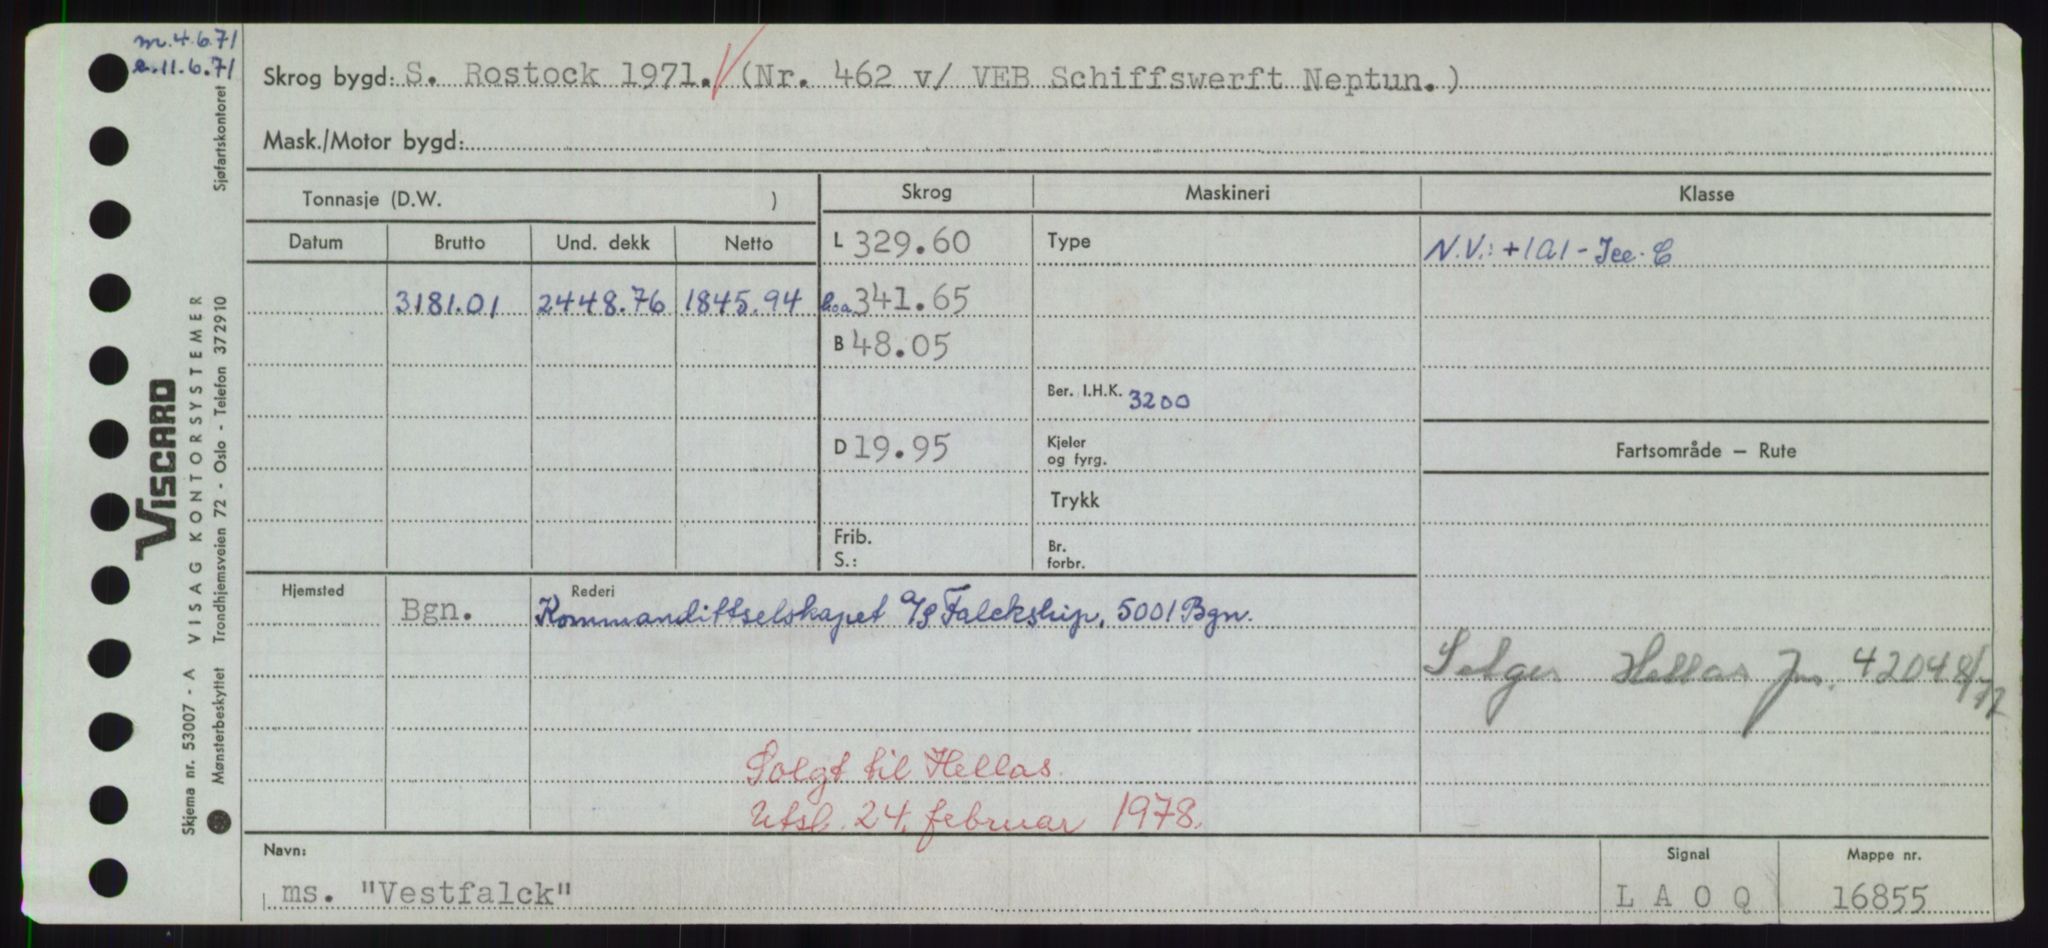 m. 4.6.71
e. 11.6.71
Skrog bygd: S. Rostock 1971. (Nr. 462 v/ VEB Schiffswerft Neptun.)
Mask./Motor bygd:
Tonnasje (D.W. ) Skrog Maskineri Klasse
Datum Brutto Und. dekk Netto L 329.60 Type N.V.: +1A1-Ice-C
3181.01 2448.76 1845.94 loa 341.65
B 48.05
Ber. I.H.K. 3200
D 19.95 Kjeler og fyrg. Fartsområde — Rute
Trykk
Frib. S.: Br. forbr.
Hjemsted Bgn. Rederi Kommandittselskapet A/S Falckship, 5001 Bgn.
Selges Hellas Jnr. 42048/77
Solgt til Hellas.
Utsl. 24. februar 1978.
Navn: Signal Mappe nr.
ms. "Vestfalck" L A O Q 16855
Viscard
VISAG KONTORSYSTEMER
Skjema nr. 53007 - A
Mønsterbeskyttet Trondhjemsveien 72 - Oslo - Telefon 372910 Sjøfartskontoret